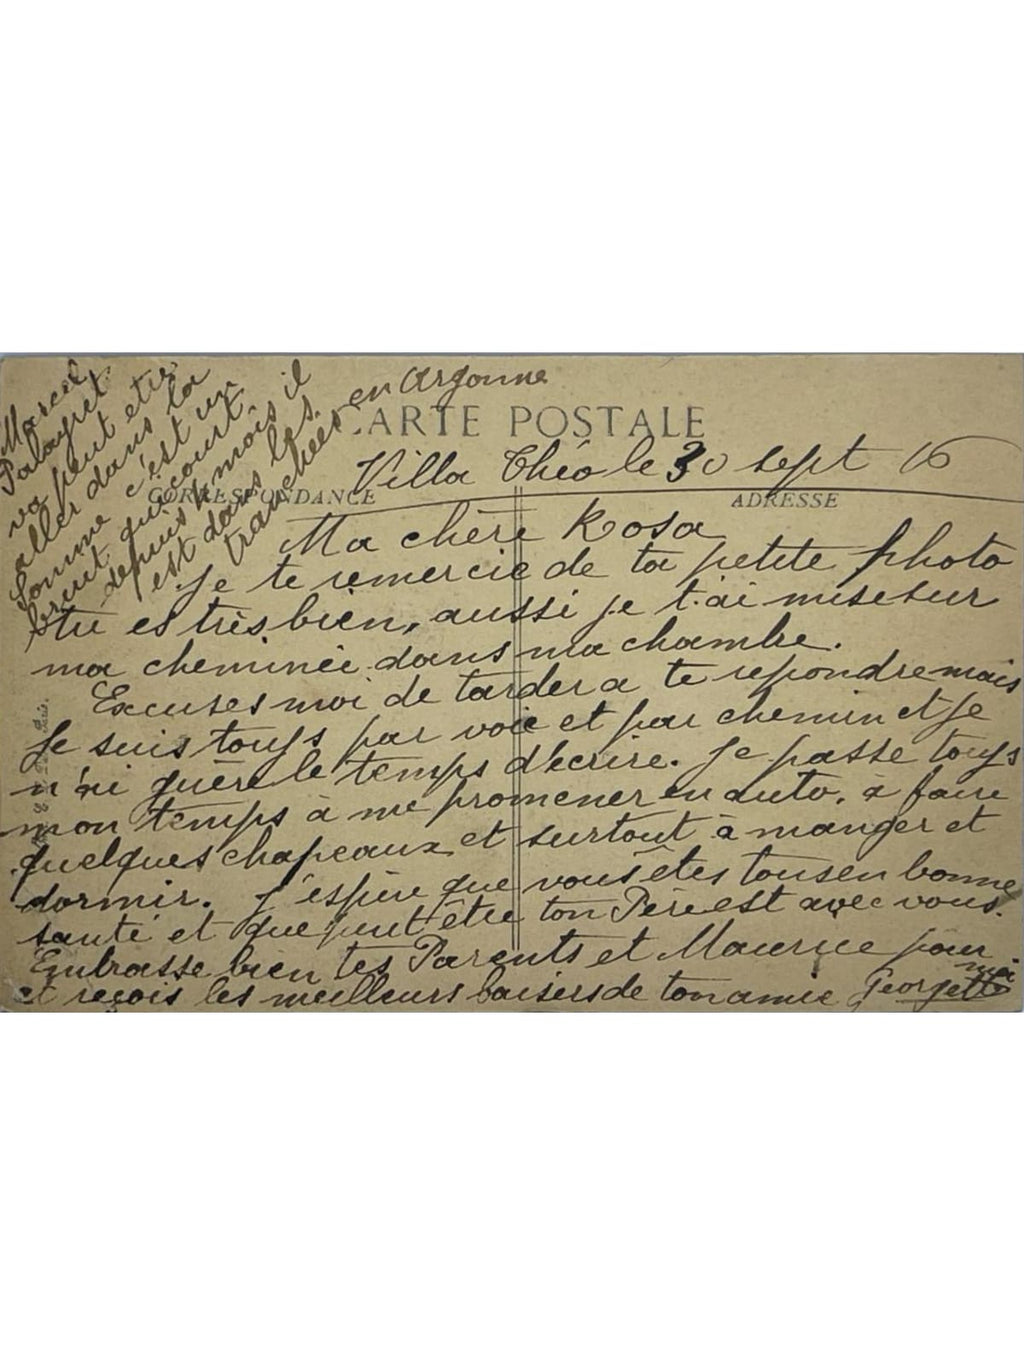 Marcel
Palayret
va peut etre
aller dans la
Somme c'est un
bruit qui court
depuis 4 mois il
est dans les
tranchées en Argonne
CARTE POSTALE
Villa Théo le 30 sept 16
CORRESPONDANCE
ADRESSE
Ma chère Rosa
Je te remercie de ta petite photo
tu es très bien, aussi je t'ai mise sur
ma cheminée dans ma chambre.
Excuses moi de tarder a te repondre mais
je suis toujs par voie et par chemin et je
n'ai guère le temps d'écrire. Je passe toujs
mon temps à me promener en auto, à faire
quelques chapeaux et surtout à manger et
dormir. J'espère que vous êtes tous en bonne
santé et que peut être ton Père est avec vous.
Embrasse bien tes Parents et Maurice pour
moi
et reçois les meilleurs baisers de ton amie Georgette